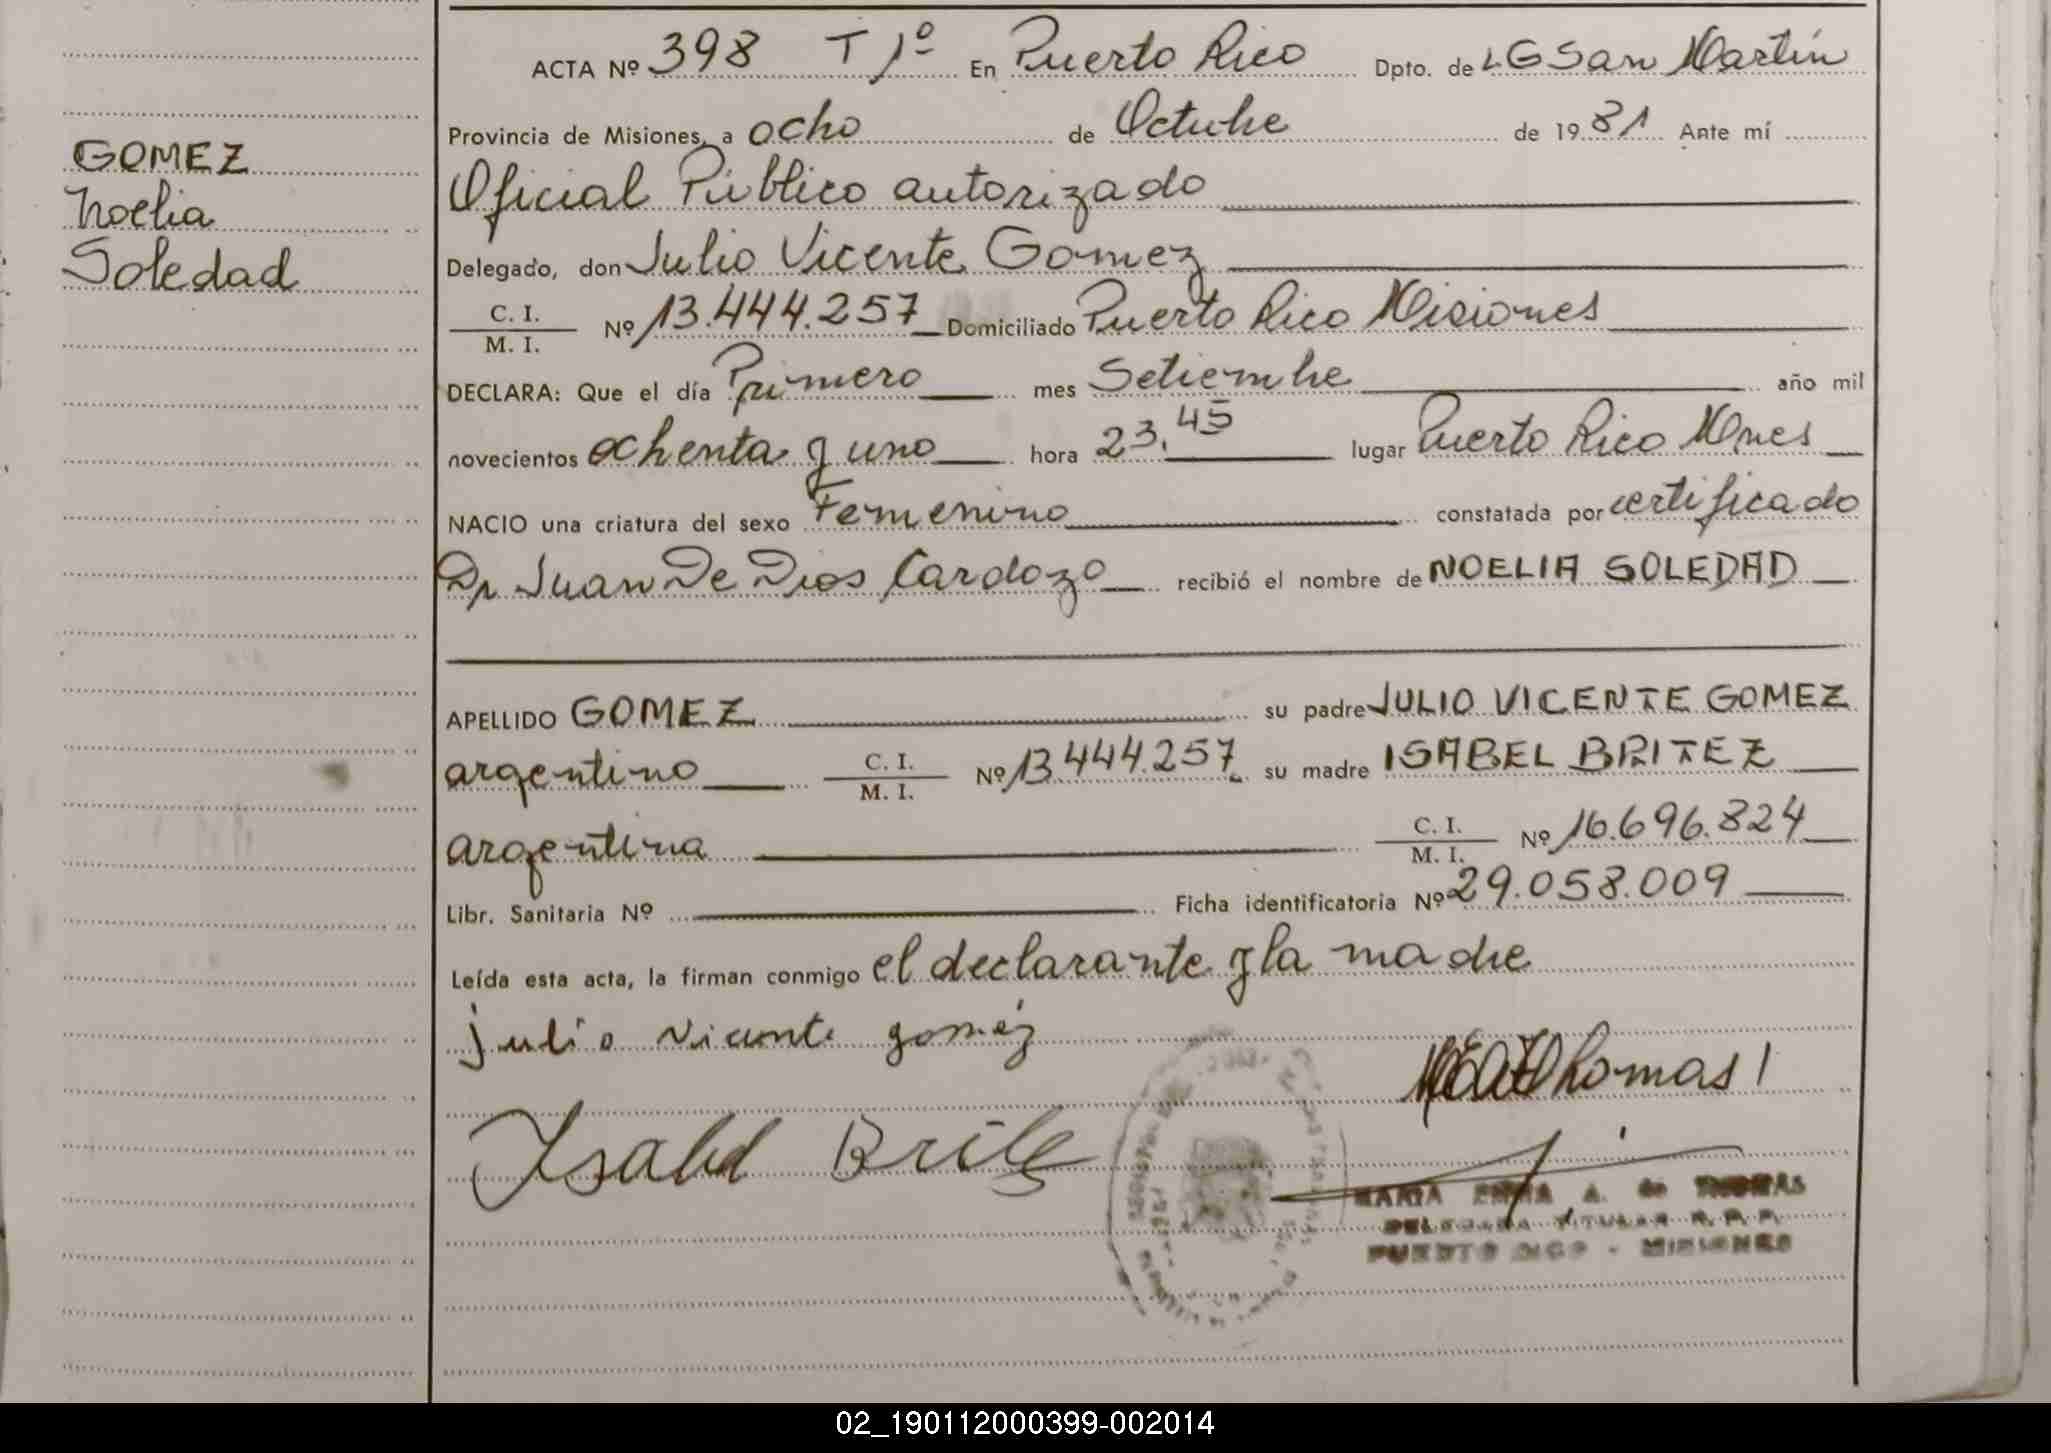 GOMEZ
Noelia
Soledad
ACTA Nº 398 T 1º En Puerto Rico Dpto. de LG San Martín
Provincia de Misiones, a ocho de Octubre de 1981 Ante mí
Oficial Público autorizado
Delegado, don Julio Vicente Gomez
C. I.
M. I. Nº 13.444.257 Domiciliado Puerto Rico Misiones
DECLARA: Que el día Primero mes Setiembre año mil
novecientos ochenta y uno hora 23,45 lugar Puerto Rico Mnes
NACIO una criatura del sexo Femenino constatada por certificado
Dr Juan De Dios Cardozo recibió el nombre de NOELIA SOLEDAD
APELLIDO GOMEZ su padre JULIO VICENTE GOMEZ
argentino C. I. M. I. Nº 13.444.257 su madre ISABEL BRITEZ
argentina C. I. M. I. Nº 16.696.824
Libr. Sanitaria Nº Ficha identificatoria Nº 29.058.009
Leída esta acta, la firman conmigo el declarante y la madre
julio vicente goméz
Thomas
Isabel Brite
MARIA EMMA A. de THOMAS
DELEGADA TITULAR R. P. P.
PUERTO RICO - MISIONES
02_190112000399-002014